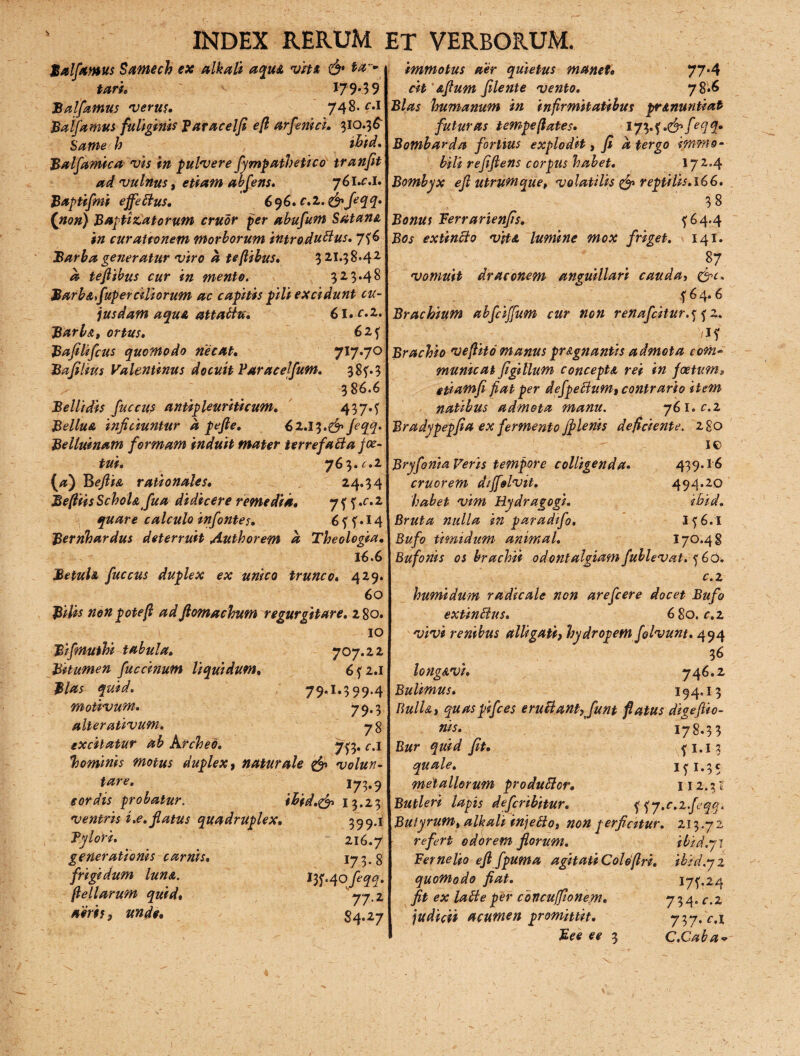 INDEX RERUM ET VERBORUM.
Balsamus Samech ex alkali aquæ vitæ & tar-
tari. 179.39
Balsamus verus. 748. c.1
Balsamus fuliginis Paracelsi est arsenici. 310.36
Same h ibid.
Balsamica vis in pulvere sympathetico transit
ad vulnus, etiam absens. 761.c.1.
Baptismi effectus. 696. c.2. & seqq.
(non) Baptizatorum cruor per abusum Satanæ
in curationem morborum introductus. 756
Barba generatur viro à testibus. 321.38.42
à testibus cur in mento. 323.48
Barbæ, superciliorum ac capitis pili excidunt cu-
jusdam aquæ attactu. 61. c.2.
Barbæ, ortus. 625
Basiliscus quomodo necat. 717.70
Basilius Valentinus docuit Paracelsum. 385.3
386.6
Bellidis succus antipleuriticum. 437.5
Belluæ inficiuntur à peste. 62.13.& seqq.
Belluinam formam induit mater terrefacta fœ-
tui. 763. c.2
(a) Bestiæ rationales. 24.34
Bestiis Scholæ sua didicere remedia. 755.c.2
quare calculo insontes. 655.14
Bernhardus deterruit Authorem à Theologia.
16.6
Betulæ succus duplex ex unico trunco. 429.
60
Bilis non potest ad stomachum regurgitare. 280.
10
Bismuthi tabula. 707.22
Bitumen succinum liquidum. 652.1
Blas quid. 79.1.399.4
motivum. 79.3
alterativum. 78
excitatur ab Archeo. 753. c.1
hominis motus duplex, naturale & volun-
tare. 173.9
cordis probatur. ibid.& 13.23
ventris i.e. flatus quadruplex. 399.1
Pylori. 216.7
generationis carnis. 173.8
frigidum lunæ. 135.40 seqq.
stellarum quid. 77.2
aëris, unde. 84.27
immotus aër quietus manet. 77.4
cit æstum silente vento. 78.6
Blas humanum in infirmitatibus prænuntiat
futuras tempestates. 173.5.& seqq.
Bombarda fortius explodit, si à tergo immo-
bili resistens corpus habet. 172.4
Bombyx est utrumque, volatilis & reptilis.166.
38
Bonus Ferrariensis. 564.4
Bos extincto vitæ lumine mox friget. 141.
87
vomuit draconem anguillari cauda, &c.
564.6
Brachium abscissum cur non renascitur.552.
15
Brachio vestito manus prægnantis admota com-
municat sigillum conceptæ rei in fœtum,
etiamsi fiat per despectum, contrario item
natibus admota manu. 761. c.2
Bradypepsia ex fermento splenis deficiente. 280
10
Brysonia Veris tempore colligenda. 439.16
cruorem dissolvit. 494.20
habet vim Hydragogi. ibid.
Bruta nulla in paradiso. 156.1
Bufo timidum animal. 170.48
Bufonis os brachii odontalgiam sublevat. 560.
c.2
humidum radicale non arescere docet Bufo
extinctus. 680. c.2
vivi renibus alligati, hydropem solvunt. 494
36
longævi. 746.2
Bulimus. 194.13
Bullæ, quas pisces eructant, sunt flatus digestio-
nis. 178.33
Bur quid sit. 51.13
quale. 151.35
metallorum productor. 112.31
Butleri lapis describitur. 557.c.2.seqq.
Butyrum, alkali injecto, non perficitur. 213.72
refert odorem florum. ibid.71
Fernelio est spuma agitati Colostri. ibid.72
quomodo fiat. 175.24
fit ex lacte per concussionem. 734. c.2
judicii acumen promittit. 737. c.1
Eee ee 3 C.Caba-